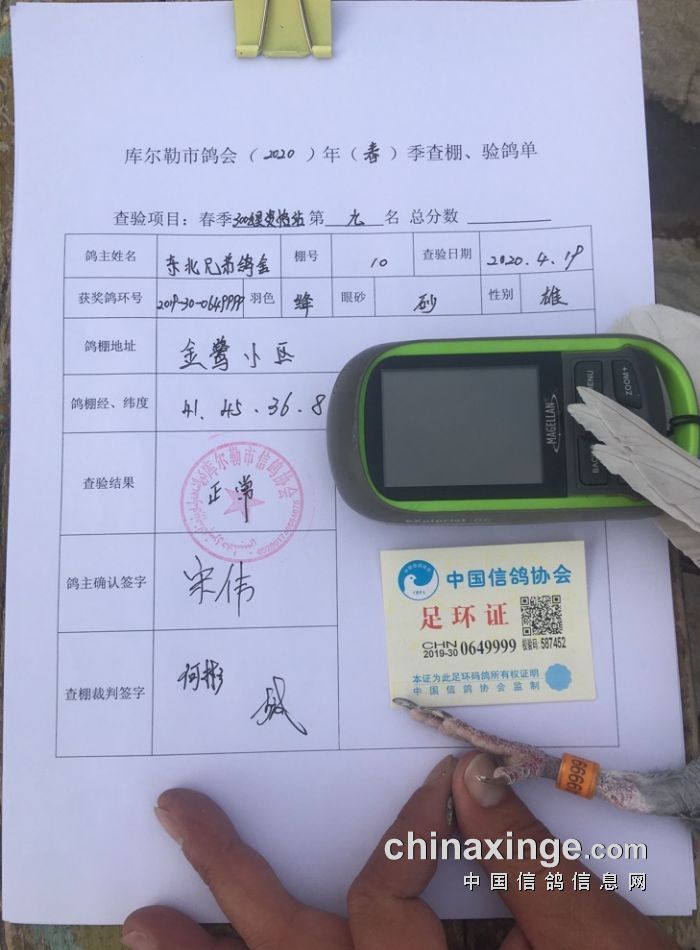 库尔勒市鸽会（2020）年（春）季查棚、验鸽单
查验项目：春季300公里资格站 第 九 名 总分数
鸽主姓名 东北兄弟鸽舍 棚号 10 查验日期 2020.4.19
获奖鸽环号 2019-30-0649999 羽色 绛 眼砂 砂 性别 雄
鸽棚地址 金鹭小区
鸽棚经、纬度 41.45.36.8
查验结果 正常
库尔勒市信鸽协会
鸽主确认签字 宋伟
查棚裁判签字 何彬
MAGELLAN
MENU
ZOOM+
BACK
eXplorist
中国信鸽协会
足环证
CHN
2019-30 0649999 校验码: 587452
本证为此足环码鸽所有权证明
中国信鸽协会监制
49999
chinaxinge.com
中国信鸽信息网